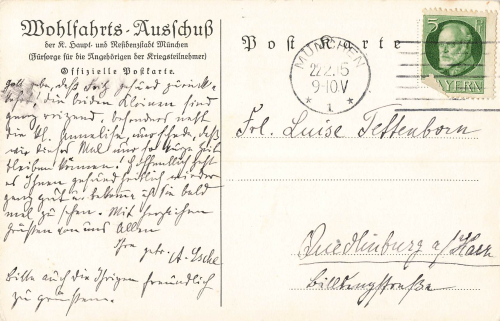 Wohlfahrts-Ausschuß
der K. Haupt- und Residenzstadt München
(Fürsorge für die Angehörigen der Kriegsteilnehmer)
Offizielle Postkarte.
Gott gebe, daß Fritz gesund zurück-
die beiden Kleinen sind
ganz reizend, besonders nett
die kl. Annelise, nur schade, daß
wir dieses Mal nur so kurze Zeit
bleiben können! Hoffentlich geht
es Ihnen gesundheitlich wieder
ganz gut u. bekomme ich Sie bald
mal zu sehen. Mit herzlichen
Grüßen von uns Allen
Ihre getr. A. Esche
Bitte auch die Ihrigen freundlich
zu grüssen.
Postkarte
MÜNCHEN
22.2.15
9-10.V
* 1 *
5 PF
BAYERN
Frl. Luise Tettenborn
Quedlinburg a/Harz